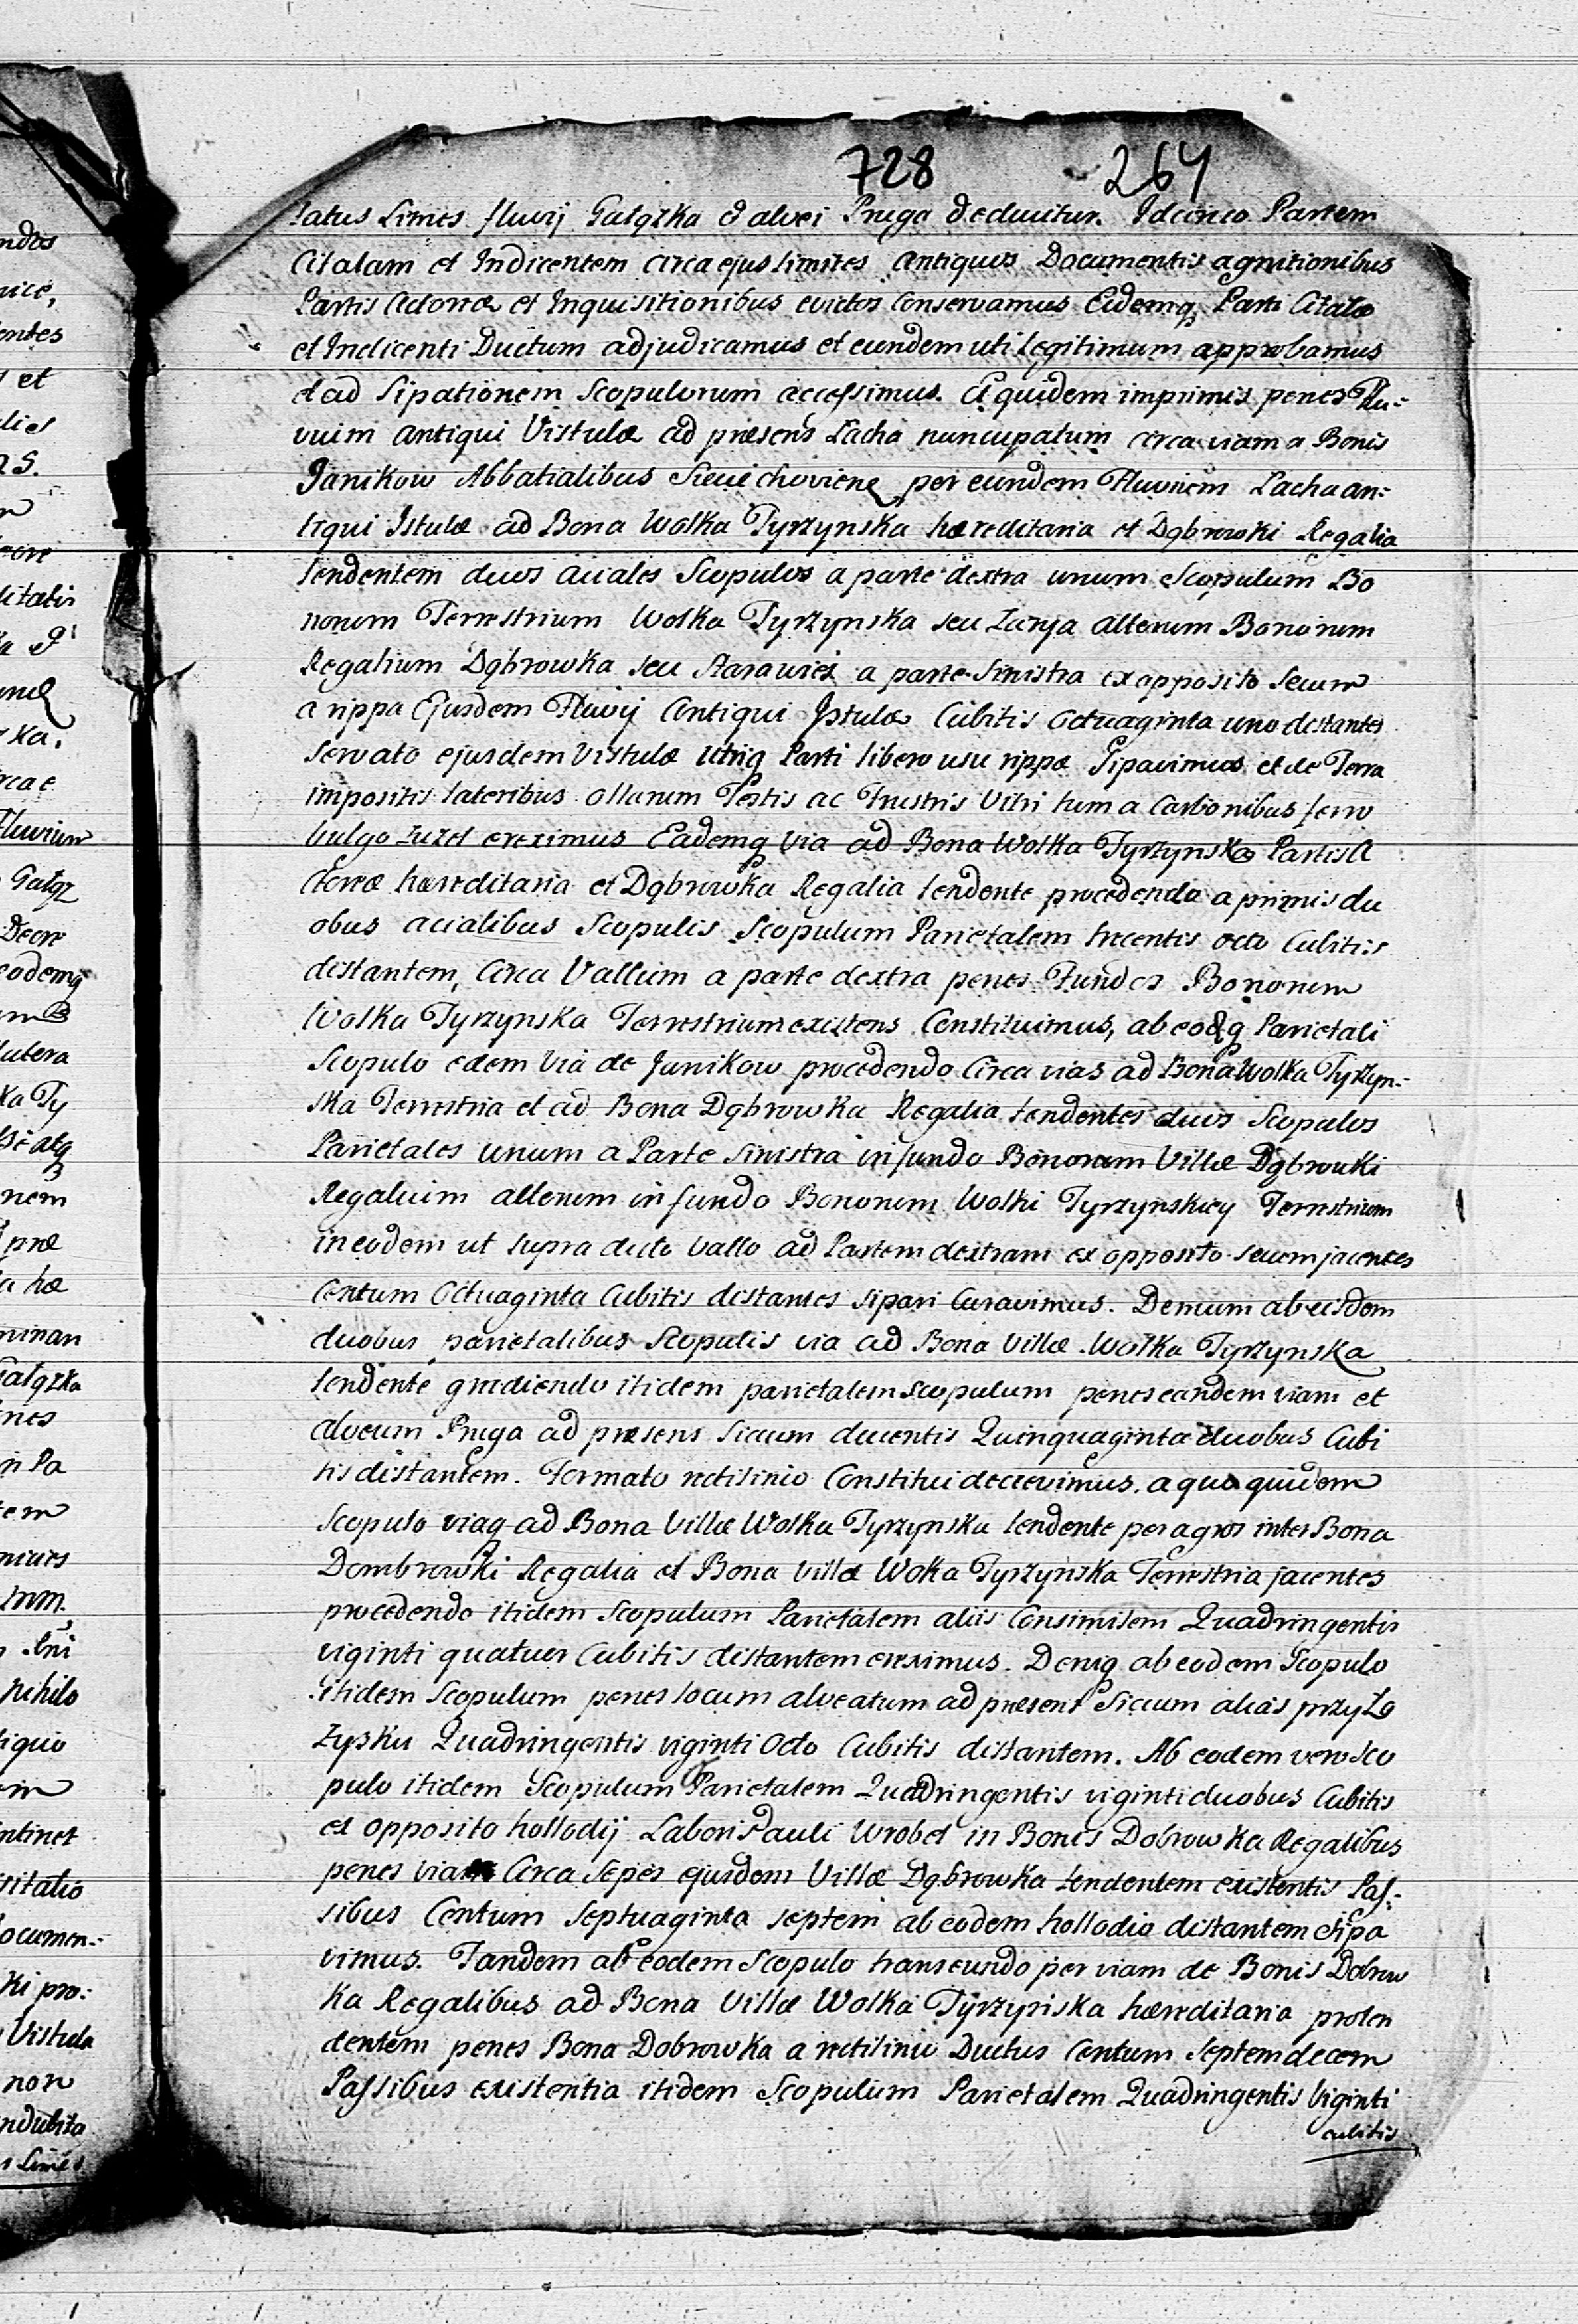 728 264
latus Limes fluvij Gałązka & alvei Pruga deducitur. Idcirco Partem
Citatam et Indicentem circa ejus limites antiquos Documentis agnitionibus
Partis Actoreæ et Inquisitionibus evictos Conservamus Eidemq Parti Citatæ
et Indicenti Ductum adjudicamus et eundem uti legitimum approbamus
et ad Sipationem Scopulorum accessimus. Et quidem imprimis penes Flu:
vium antiqui Vistulæ ad præsens Lacha nuncupatum circa viam a Bonis
Janikow Abbatialibus Sieciechoviens per eundem Fluvium Lacha an:
tiqui Istulæ ad Bona Wolka Tyrzynska hæreditaria et Dąbrowki Regalia
tendentem duos aciales Scopulos a parte dextra unum Scopulum Bo
norum Terrestrium Wolka Tyrzynska seu alterum Bonorum
Regalium Dąbrowka seu Starawies a parte Sinistra ex opposito Secum
a rippa Ejusdem Fluvij Antiqui Istulæ Cubitis Octuaginta uno distantes
servato ejusdem Vistulæ utriq Parti libero usu rippæ Sipavimus et de Terra
impositis lateribus ollarum Testis ac Frustris Vitri tum a Carbonibus ferro
vulgo zuzel ereximus Eademq via ad Bona Wolka Tyrzynska Partis A
ctoreæ hæreditaria et Dąbrowka Regalia tendente procedendo a primis du
obus acialibus Scopulis Scopulum Parietalem trecentis octo Cubitis
distantem, Circa Vallum a parte dextra penes Fundos Bonorum
Wolka Tyrzynska Terrestrium existens Constituimus, ab eoq Parietali
Scopulo edem via de Janikow procedendo Circa vias ad Bona Wolka Tyrzyn:
ska Terrestria et ad Bona Dąbrowka Regalia tendentes duos Scopulos
Parietales unum a Parte Sinistra in fundo Bonorum Villæ Dąbrowki
Regalium alterum in fundo Bonorum Wolki Tyrzynskiey Terrestrium
in eodem ut supra dicto vallo ad Partem dextram ex opposito secum jacentes
Centum Octuaginta Cubitis distantes sipari Curavimus. Demum ab eisdem
duobus parietalibus Scopulis via ad Bona Villæ Wolka Tyrzynska
tendente grediendo itidem parietalem scopulum penes eandem viam et
alveum Pruga ad præsens siccum ducentis Quinquaginta duobus Cubi
tis distantem. Formato rectilinio Constitui decrevimus. a quo quidem
Scopulo viaq ad Bona Villæ Wolka Tyrzynska tendente per agros inter Bona
Dombrowki Regalia et Bona Villæ Wolka Tyrzynska Terrestria jacentes
procedendo itidem Scopulum Parietalem aliis Consimilem Quadringentis
viginti quatuor Cubitis distantem ereximus. Deniq ab eodem Scopulo
itidem Scopulum penes locum alveatum ad præsens Siccum alias przy Lo
zysku Quadringentis viginti Octo Cubitis distantem. Ab eodem vero Sco
pulo itidem Scopulum Parietalem Quadringentis viginti duobus Cubitis
ex opposito hollodij Labori Pauli Wrobel in Bonis Dobrowka Regalibus
penes viam Circa Sepes ejusdem Villæ Dąbrowka tendentem existentis Pas:
sibus Centum Septuaginta septem ab eodem hollodio distantem sipa
vimus. Tandem ab eodem Scopulo transeundo per viam de Bonis Dobrow
ka Regalibus ad Bona Villæ Wolka Tyrzynska hæreditaria proten
dentem penes Bona Dobrowka a rectilinio Ductus Centum Septemdecem
Passibus existentia itidem Scopulum Parietalem Quadringentis Viginti
cubitis